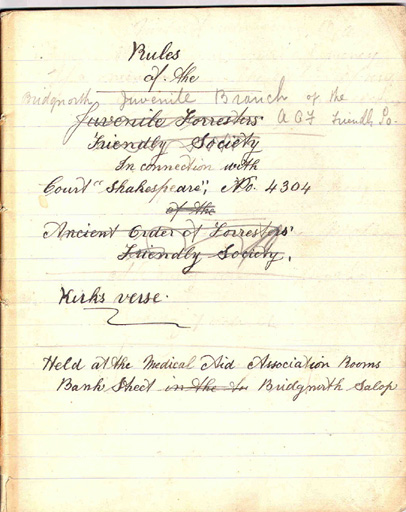 Rules
of the
Bridgnorth Juvenile Branch of the
Juvenile Forresters A O F Friendly So.
Friendly Society
In connection with
Court "Shakespeare", No. 4304
of the
Ancient Order of Forresters'
Friendly Society.
Kirks verse.
Held at the Medical Aid Association Rooms
Bank Street in the to Bridgnorth Salop